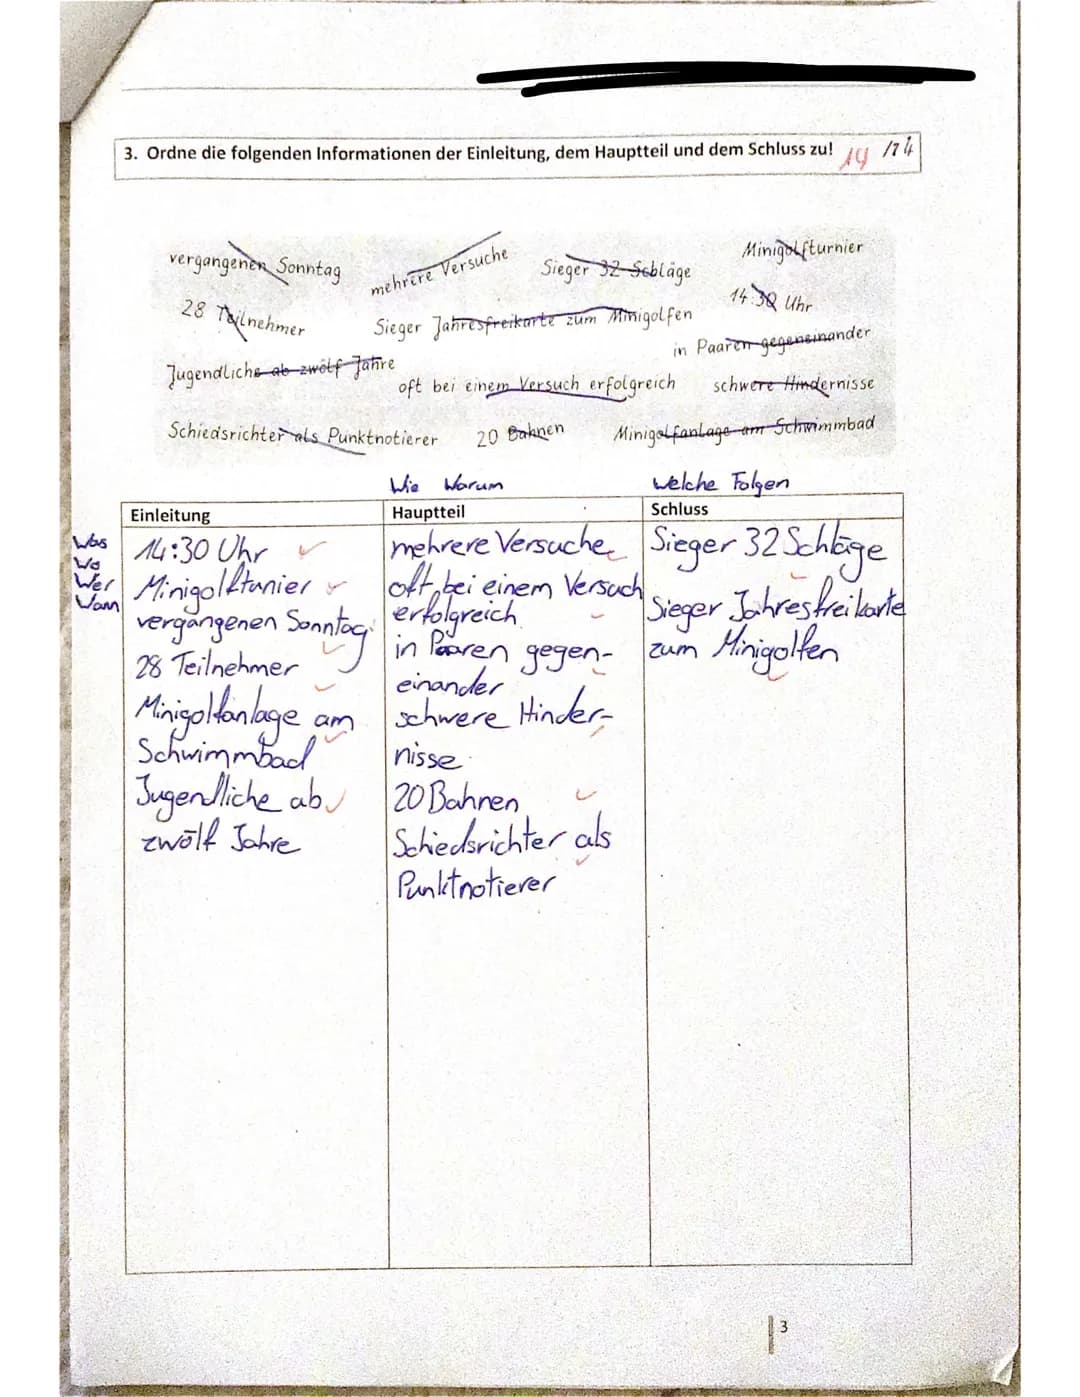 3. Ordne die folgenden Informationen der Einleitung, dem Hauptteil und dem Schluss zu! 14 /14
vergangenen Sonntag
mehrere Versuche
Sieger 32 Schläge
Minigolfturnier
28 Teilnehmer
Sieger Jahresfreikarte zum Minigolfen
14:30 Uhr
Jugendliche ab zwölf Jahre
in Paaren gegeneinander
oft bei einem Versuch erfolgreich
schwere Hindernisse
Schiedsrichter als Punktnotierer
20 Bahnen
Minigolfanlage am Schwimmbad
Wie Warum
Welche Folgen
Was
Wo
Wer
Wann
Einleitung
14:30 Uhr
Minigolftunier
vergangenen Sonntag
28 Teilnehmer
Minigolfanlage am
Schwimmbad
Jugendliche ab
zwölf Jahre
Hauptteil
mehrere Versuche
oft bei einem Versuch
erfolgreich
in Paaren gegen-
einander
schwere Hinder-
nisse
20 Bahnen
Schiedsrichter als
Punktnotierer
Schluss
Sieger 32 Schläge
Sieger Jahresfreikarte
zum Minigolfen
3